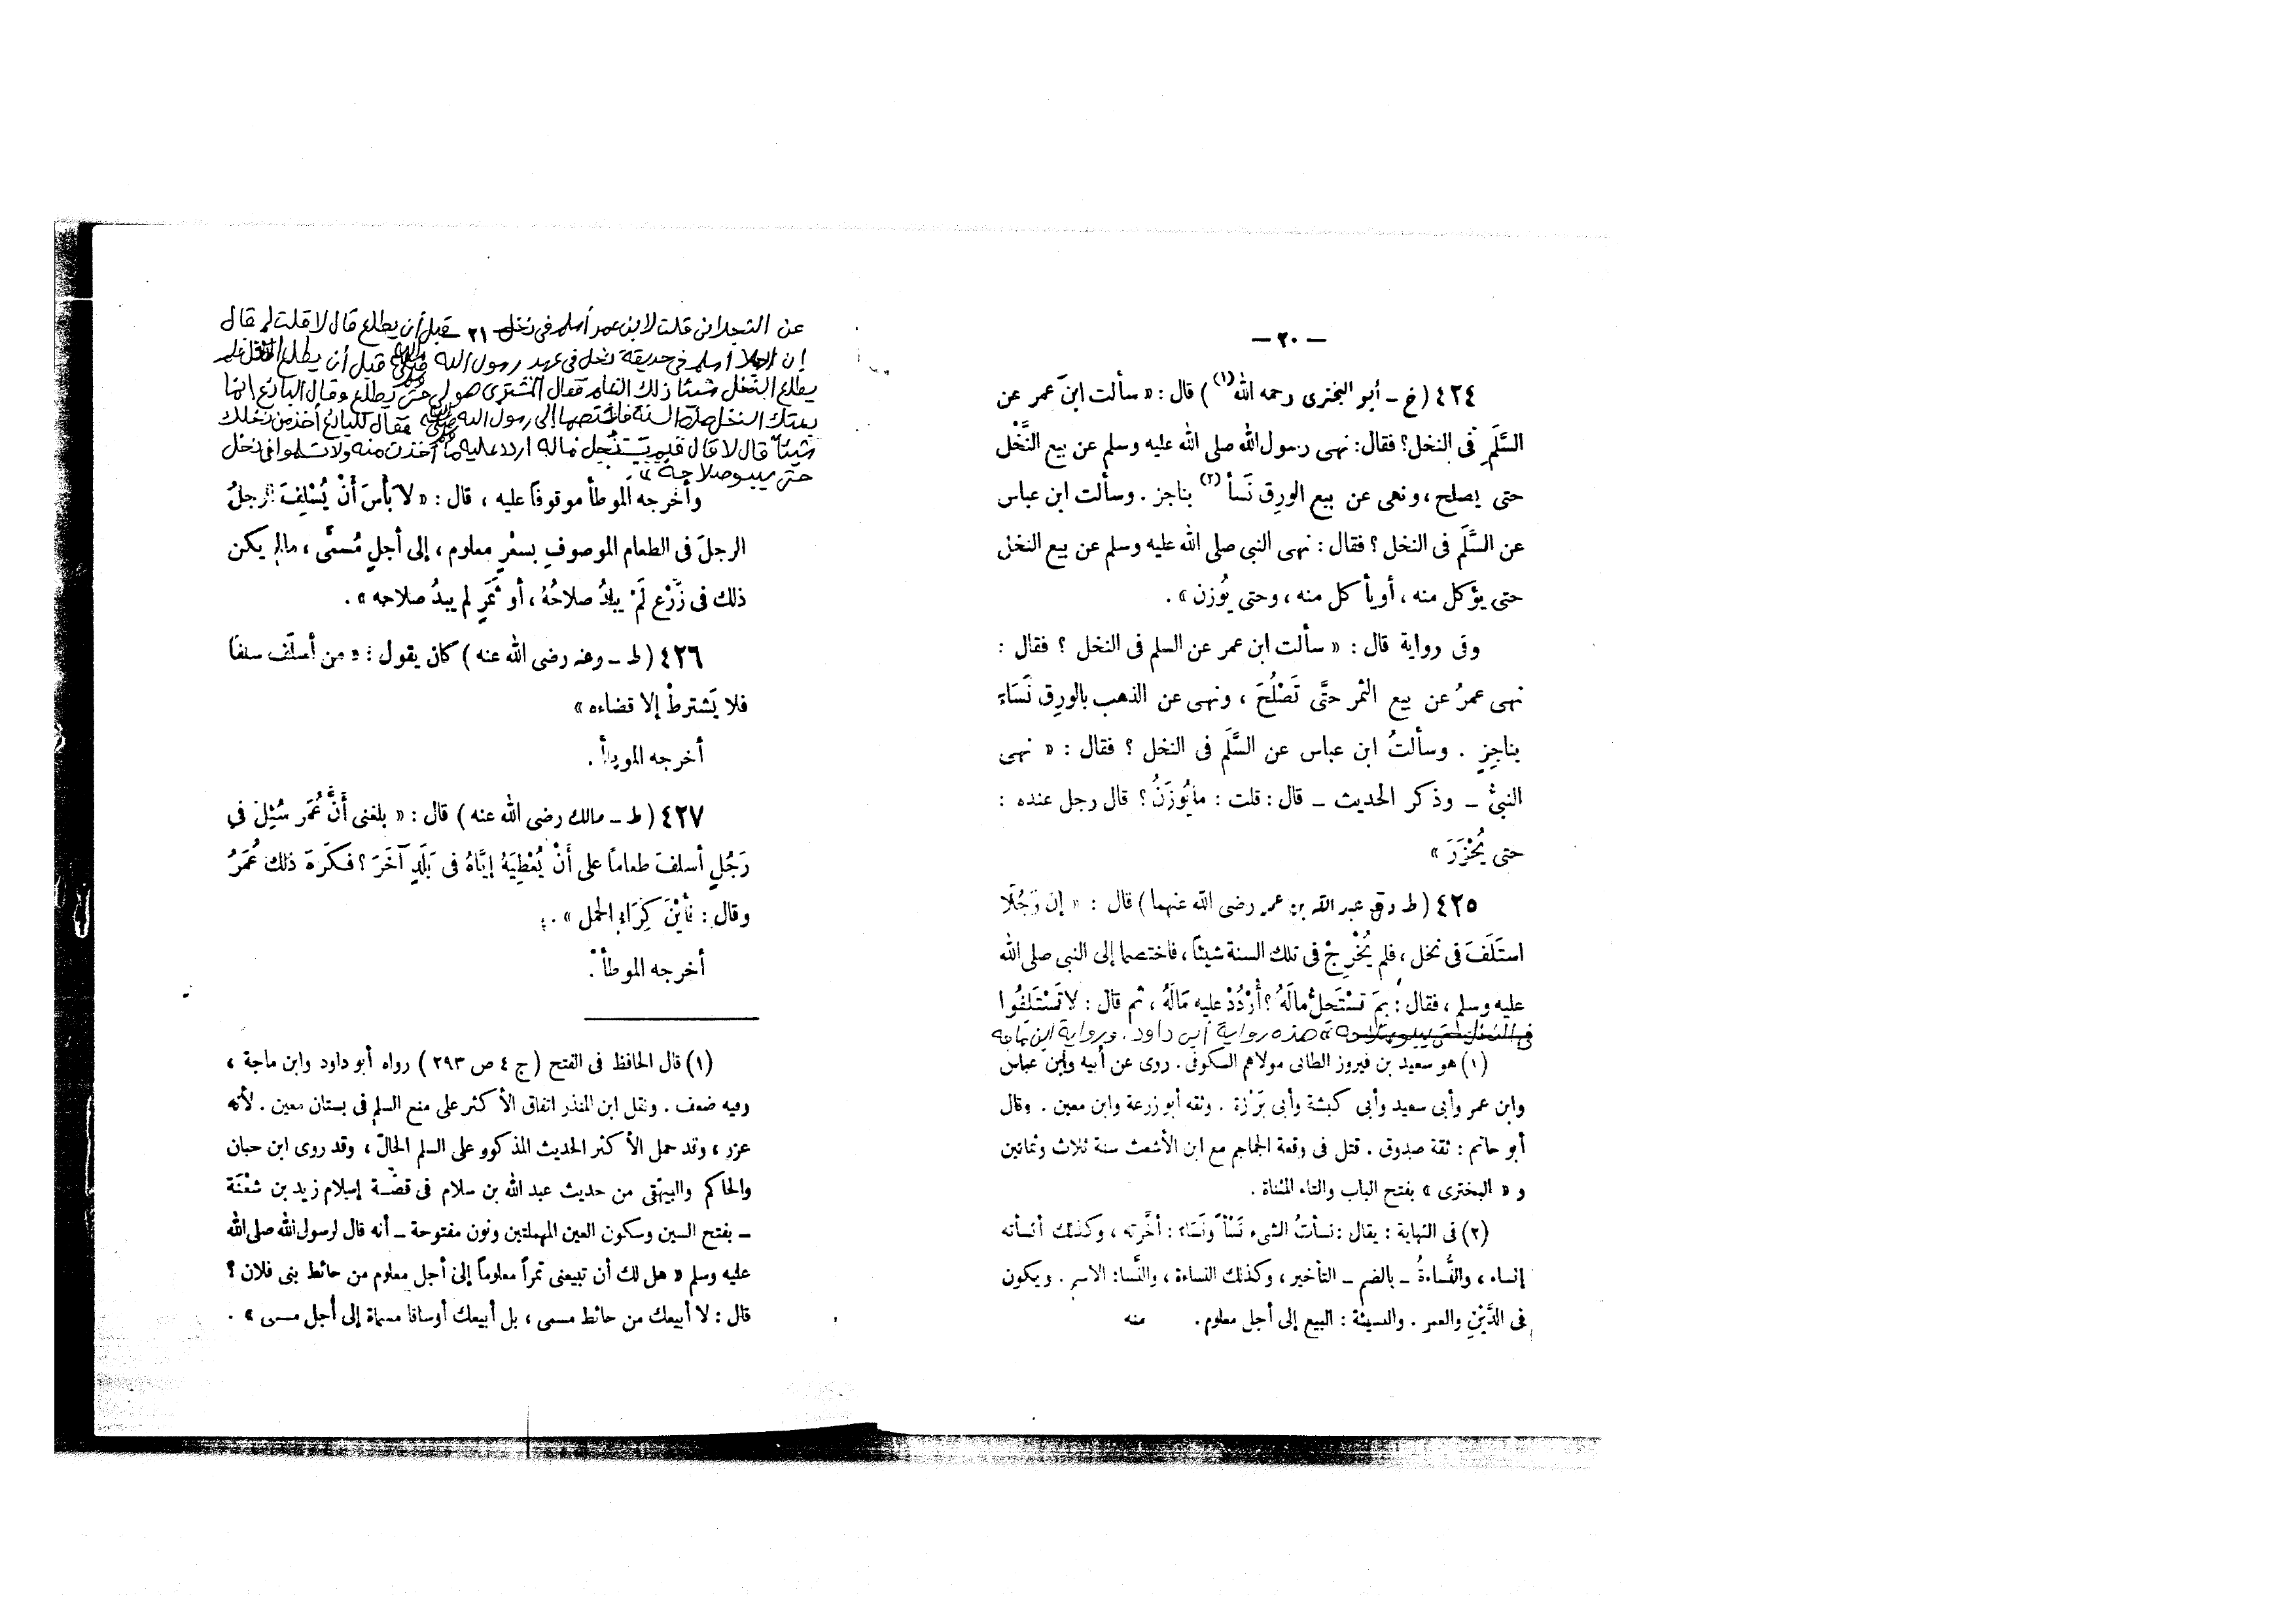 — ٢٠ —
٤٢٤ (خ – أبو البخترى رحمه الله (١) ) قال : « سألت ابنَ عمر عن
السَّلَمِ فى النخل؟ فقال : نهى رسول الله صلى الله عليه وسلم عن بيع النَّخْل
حتى يصلح ، ونهى عن بيع الورِق نَسأً (٢) بناجز . وسألت ابن عباس
عن السَّلَم فى النخل ؟ فقال : نهى النبى صلى الله عليه وسلم عن بيع النخل
حتى يؤكل منه ، أو يأكل منه ، وحتى يُوزن » .
وفى رواية قال : « سألت ابن عمر عن السلم فى النخل ؟ فقال :
نهى عمرُ عن بيع الثمر حتَّى تَصْلُحَ ، ونهى عن الذهب بالورِق نَسَاءً
بناجِزٍ . وسألتُ ابن عباس عن السَّلَم فى النخل ؟ فقال : « نهى
النبىُّ – وذكر الحديث – قال : قلت : ما يُوزَنُ ؟ قال رجل عنده :
حتى يُحْزَرَ »
٤٢٥ ( ط د ق عبد الله بن عمر رضى الله عنهما ) قال : « إن رَجُلًا
استَلَفَ فى نخل ، فلم يُخْرِجْ فى تلك السنة شيئاً ، فاختصما إلى النبى صلى الله
عليه وسلم ، فقال : بِمَ تَسْتَحِلُّ مالَهُ ؟ أُرْدُدْ عليه مَالَهُ ، ثم قال : لا تَسْتَلِفُوا
فى النخل حتى يبدو صلاحه » هذه رواية أبى داود . ورواية ابن ماجه
(١) هو سعيد بن فيروز الطائى مولاهم السكوفى . روى عن أبيه وابن عباس
وابن عمر وأبى سعيد وأبى كبشة وأبى بَرْزة . وثقه أبو زرعة وابن معين . وقال
أبو حاتم : ثقة صدوق . قتل فى وقعة الجماجم مع ابن الأشعث سنة ثلاث وثمانين
و « البخترى » بفتح الباب والتاء المثناة .
(٢) فى النهاية : يقال : نسأتُ الشىء نَسْأً ونَسَاءً : أخَّرته ، وكذلك أنسأته
إنساء ، والنُّساءةُ – بالضم – التأخير ، وكذلك النساءة ، والنَّسا : الاسم . ويكون
فى الدَّيْنِ والعمر . والنسيئة : البيع إلى أجل معلوم . منه
عن النجرانى قلت لابن عمر أسلم فى نخل ٢١ قبل أن يطلع قال لا قلت لم قال
إن رجلا أسلم فى حديقة نخل فى عهد رسول الله صلى الله عليه وسلم قبل أن يطلع النخل فلم
يطلع النخل شيئا ذلك العام فقال المشترى هو لى حتى يطلع وقال البائع إنما
بعتك النخل هذه السنة فاختصما إلى رسول الله صلى الله عليه وسلم فقال للبائع أخذ من نخلك
شيئا قال لا قال فبم تستحل ماله اردد عليه ما أخذت منه ولا تسلموا فى نخل
حتى يبدو صلاحه » .
وأخرجه الموطأ موقوفاً عليه ، قال : « لا بَأْسَ أَنْ يُسْلِفَ الرجلُ
الرجلَ فى الطعام الموصوفِ بسعْرٍ معلوم ، إلى أجلٍ مُسمَّى ، ما لم يكن
ذلك فى زَرْعٍ لَمْ يبدُ صلاحُهُ ، أو ثَمَرٍ لم يبدُ صلاحه » .
٤٢٦ ( ط – وعنه رضى الله عنه ) كان يقول : « من أسلَف سلفاً
فلا يَشترطْ إلا قضاءه »
أخرجه الموطأ .
٤٢٧ ( ط – مالك رضى الله عنه ) قال : « بلغنى أَنَّ عُمَر سُئِلَ فى
رَجُلٍ أسلفَ طعاماً على أَنْ يُعْطِيَهُ إيَّاهُ فى بَلَدٍ آخَرَ ؟ فكَرِهَ ذلك عُمَرُ
وقال : فأَيْنَ كِرَاءِ الحمل » .
أخرجه الموطأ .
(١) قال الحافظ فى الفتح ( ج ٤ ص ٢٩٣ ) رواه أبو داود وابن ماجة ،
وفيه ضعف . ونقل ابن المنذر اتفاق الأكثر على منع السلم فى بستان معين . لأنه
غرر ، وقد حمل الأكثر الحديث المذكور على السلم الحالّ ، وقد روى ابن حبان
والحاكم والبيهقى من حديث عبد الله بن سلام فى قصَّة إسلام زيد بن سَعْنَة
– بفتح السين وسكون العين المهملتين ونون مفتوحة – أنه قال لرسول الله صلى الله
عليه وسلم « هل لك أن تبيعنى تمراً معلوماً إلى أجل معلوم من حائط بنى فلان ؟
قال : لا أبيعك من حائط مسمى ، بل أبيعك أوساقا مسماة إلى أجل مسمى » .